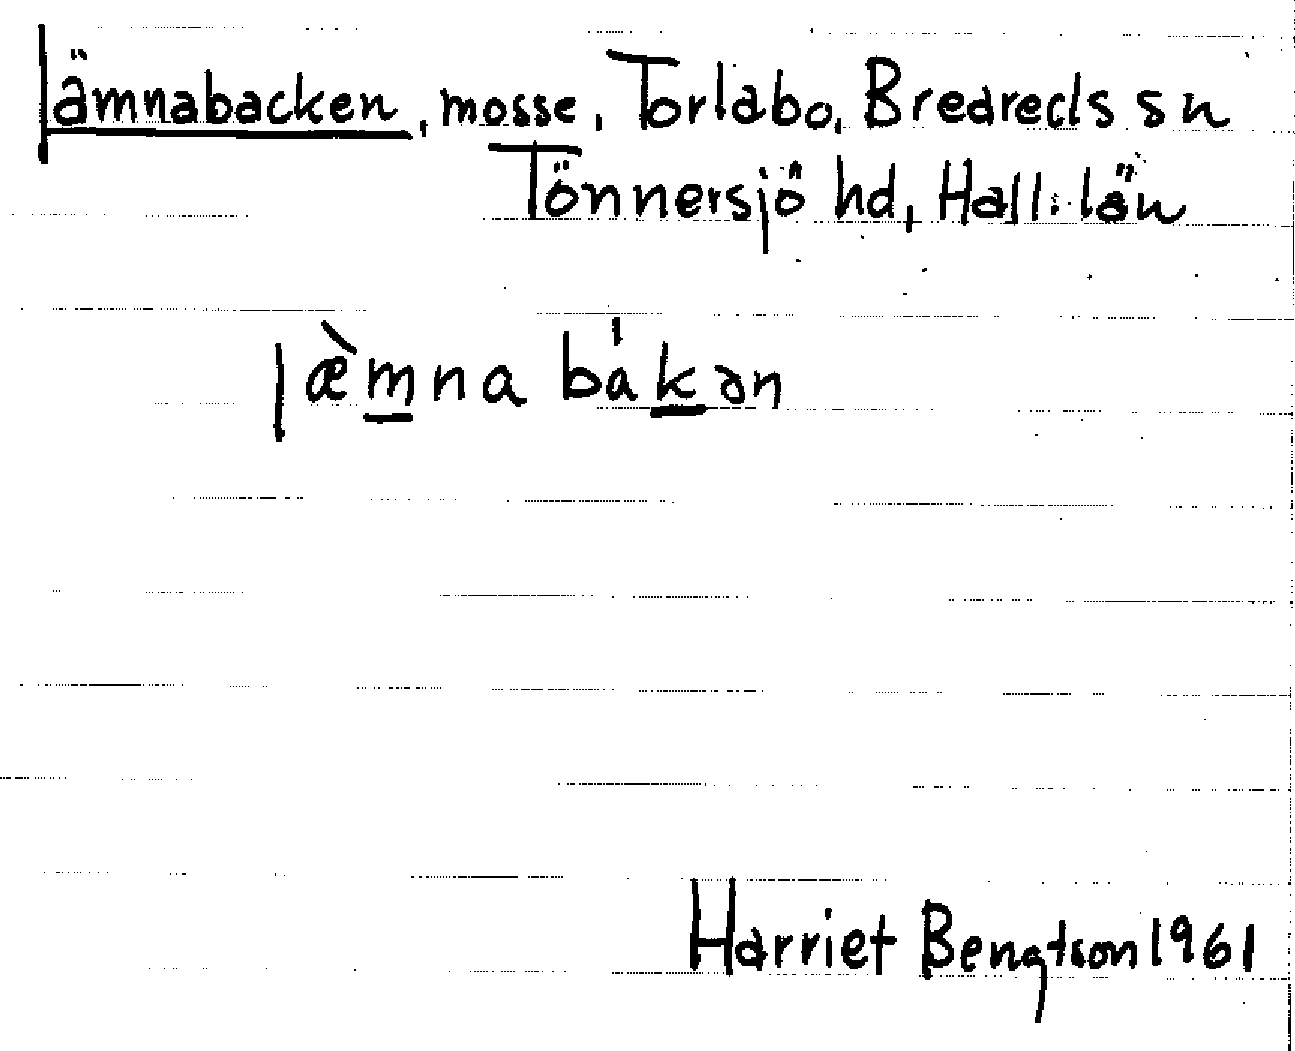 lämnabacken, mosse, Torlabo, Breareds sn
Tönnersjö hd, Hall. län
læ̀m̲na bák̲ən
Harriet Bengtson 1961